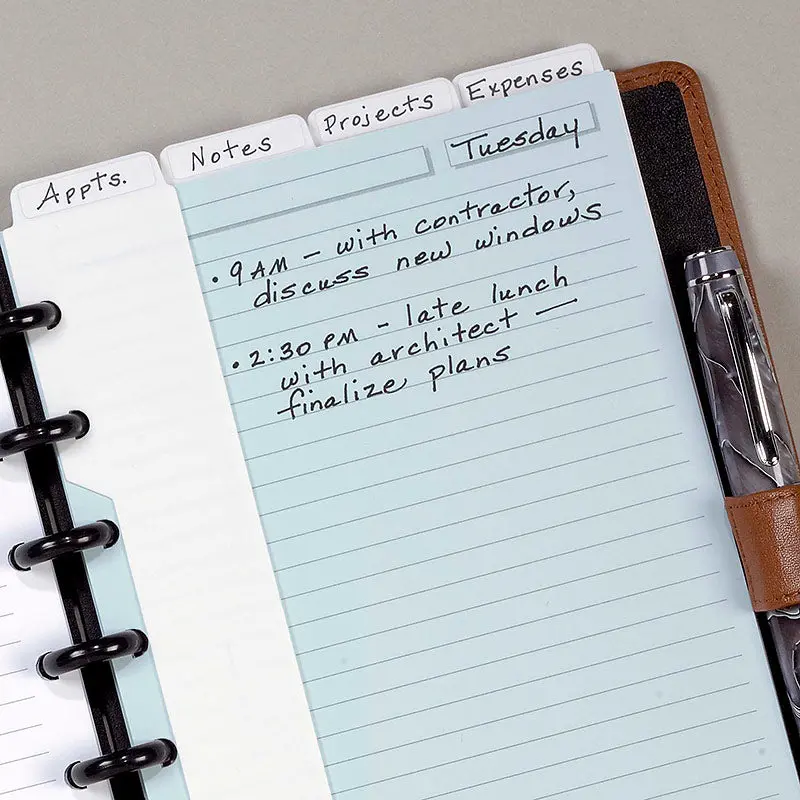 Appts.
Notes
Projects
Expenses
Tuesday
• 9 AM – with contractor,
discuss new windows
• 2:30 PM – late lunch
with architect —
finalize plans